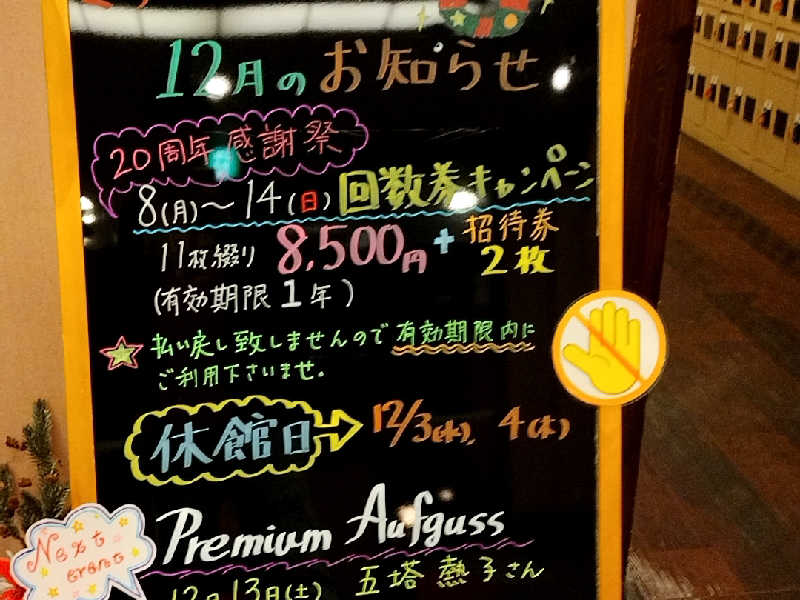 12月のお知らせ
20周年感謝祭
8(月)～14(日)回数券キャンペーン
11枚綴り 8,500円+招待券2枚
(有効期限1年)
★払い戻し致しませんので有効期限内に
ご利用下さいませ。
休館日→12/3(水)、4(木)
Premium Aufguss
Next event
12月13日(土) 五塔 熱子さん